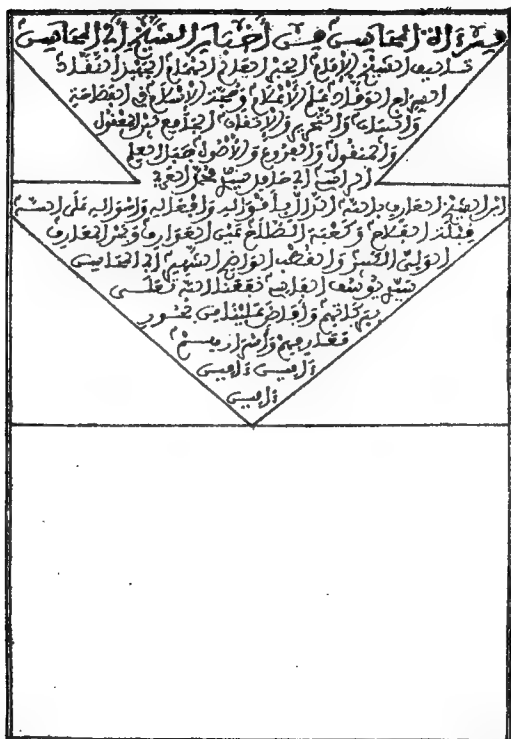 مرءاة المحاسن من أخبار الشيخ أبي المحاسن
تاليف الشيخ الإمام الحبر العلام الهمام الجهبذ النقاد
السراج الوقاد علم الأعلام وحجة الإسلام في الفصاحة
والبيان والتحرير والإتقان الجامع بين المعقول
والمنقول والفروع والأصول
أبي حامد سيدي محمد العربي
ابن الشيخ العارف بالله الدال بأقواله وأفعاله وأحواله على الله
قبلة الفلاح وكعبة الصلاح عين العوارف وبحر المعارف
الولي الكبير والقطب الواضح الشهير أبي المحاسن
سيدي يوسف الفاسي نفعنا الله تعالى
ببركاتهم وأفاض علينا من بحور
معارفهم وأسرارهم
ءامين ءامين
ءامين